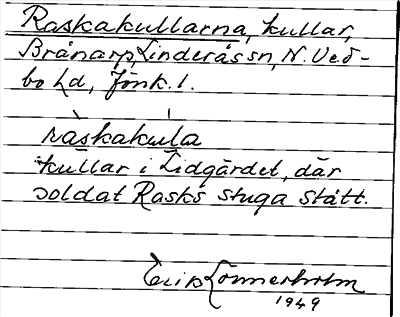 Raskakullarna, kullar,
Brånarp, Linderås sn, N. Ved-
bo hd, Jönk. l.
ràskakúla
kullar i Lidgärdet, där
soldat Rasks stuga stått.
Erik Lönnerholm
1949